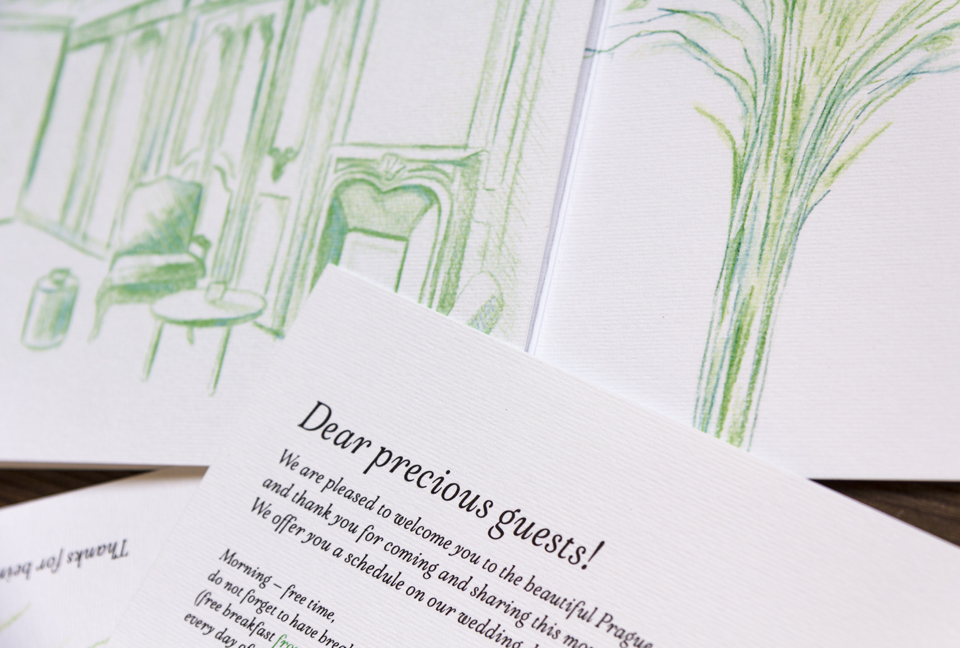 Dear precious guests!
We are pleased to welcome you to the beautiful Prague
and thank you for coming and sharing this
We offer you a schedule on our wedding
Morning – free time,
do not forget to have
(free breakfast
every day
Thanks for